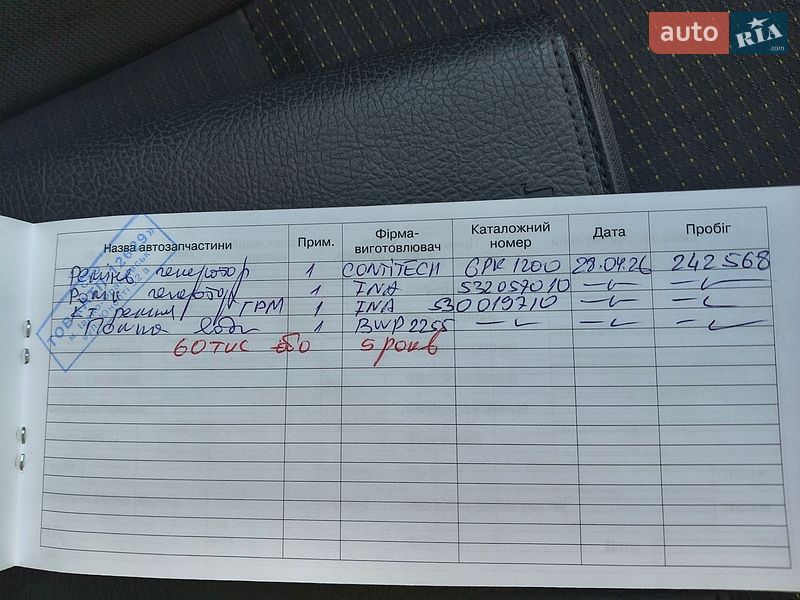 auto RIA .com
Назва автозапчастини Прим. Фірма-виготовлювач Каталожний номер Дата Пробіг
Ремінь генератор 1 CONTITECH 6PK1200 29.04.26 242568
Ролик генератор 1 INA 532057010 -"- -"-
К-т ремня ГРМ 1 INA 530019710 -"- -"-
Помпа води 1 BWP2255 -"- -"- -"-
60 тис або 5 років